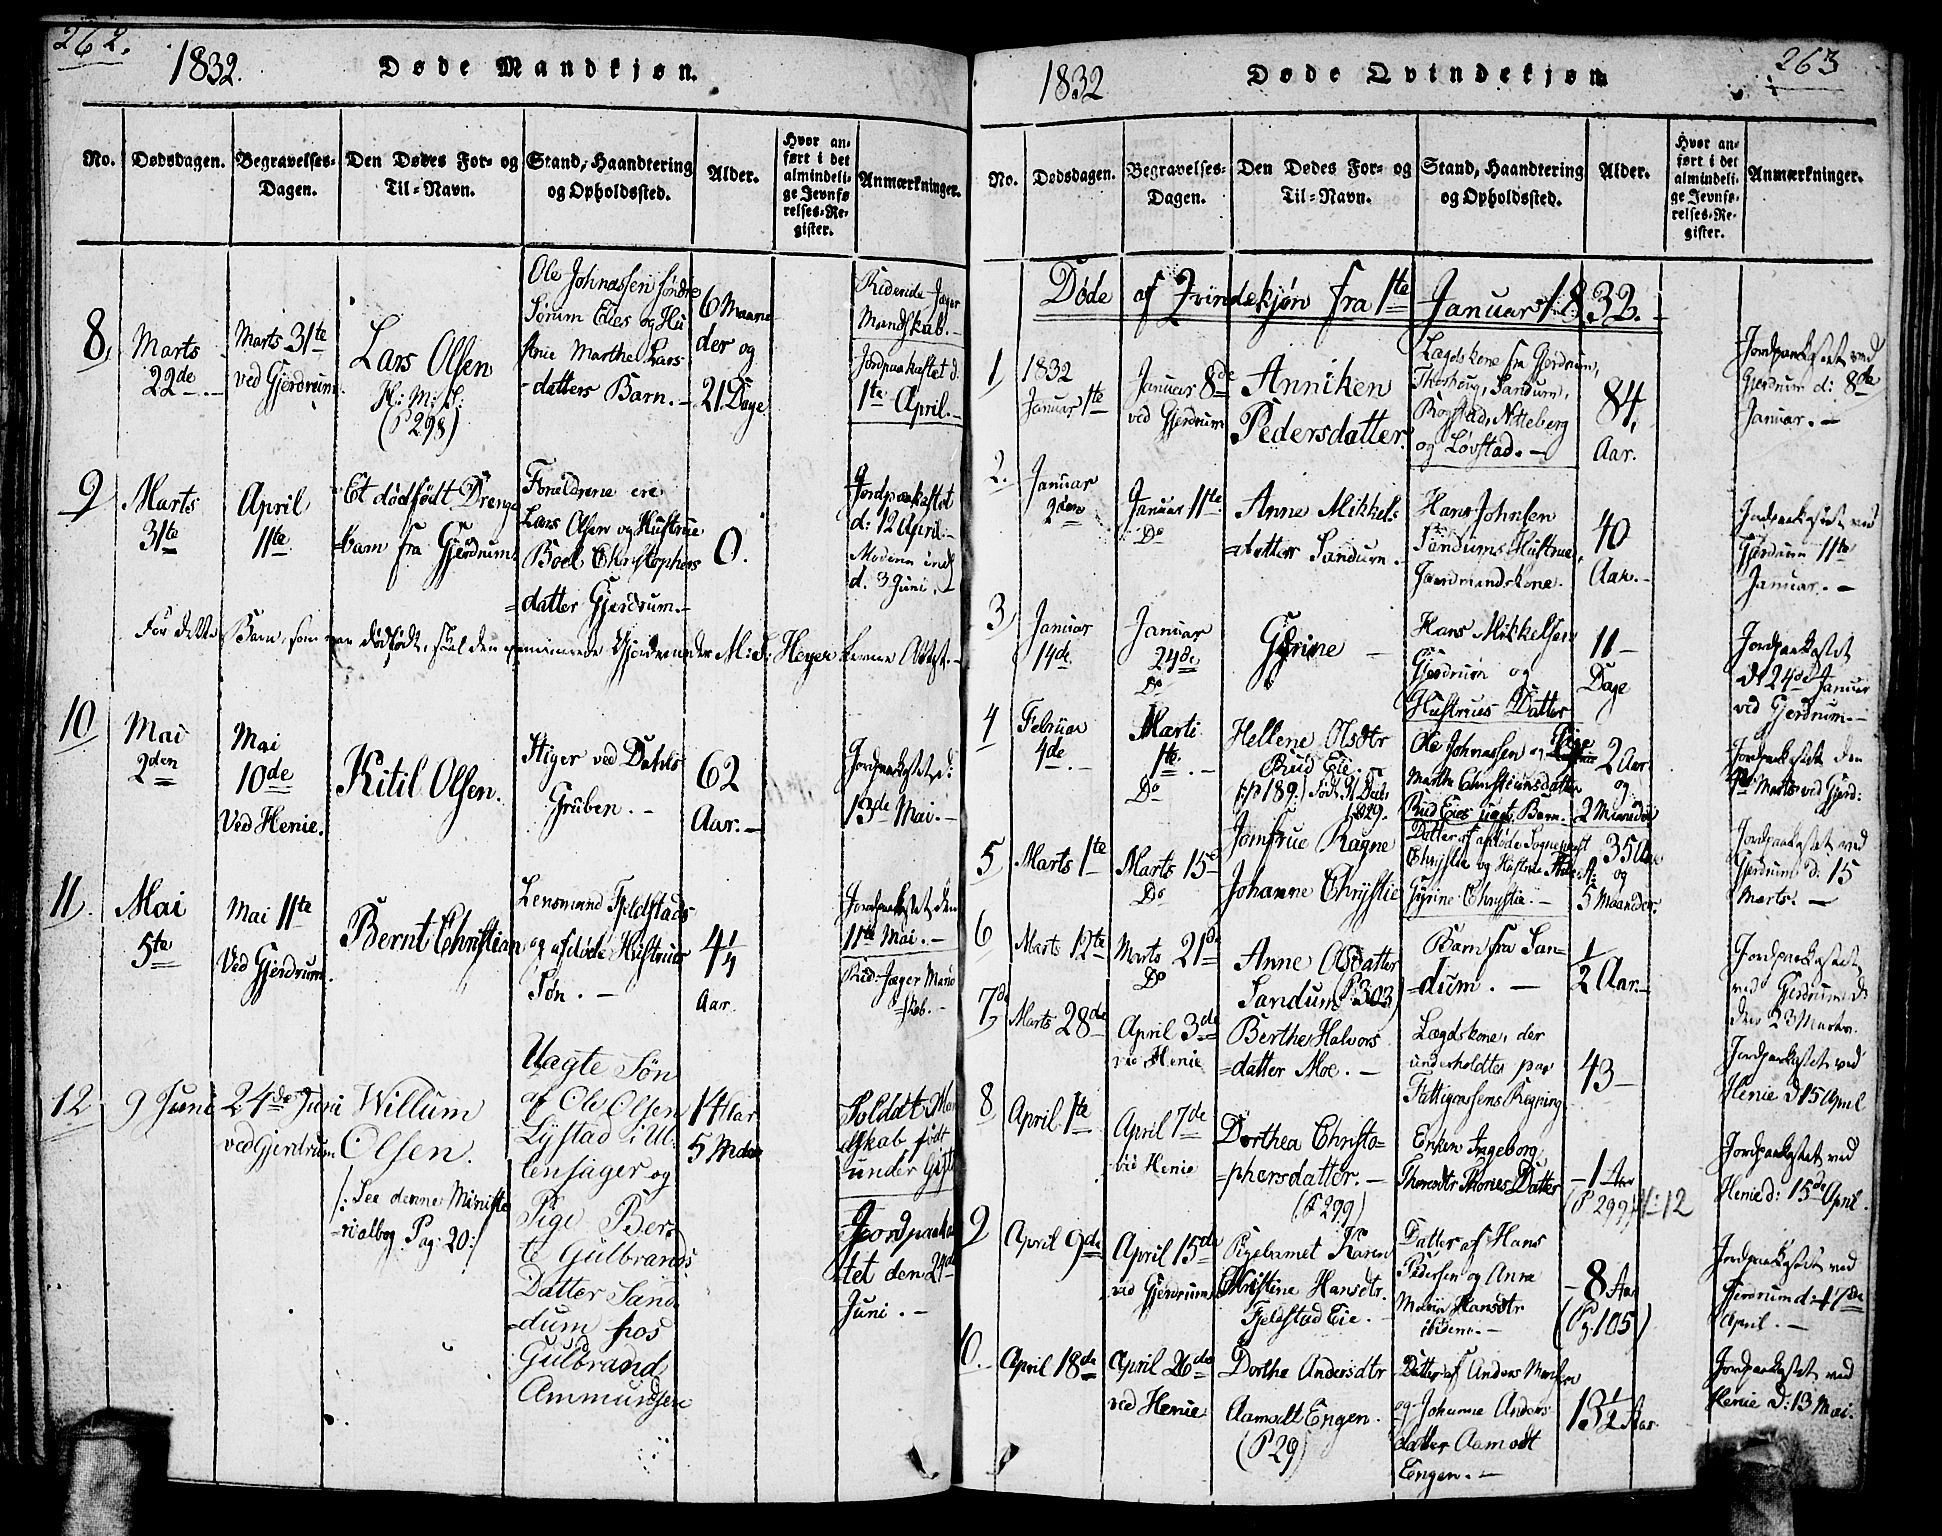 262.
1832.
Døde Mandkjøn.
No.
Dødsdagen.
Begravelses-
Dagen.
Den Dødes For- og
Til-Navn.
Stand, Haandtering
og Opholdssted.
Alder.
Hvor an-
ført i det
almindeli-
ge Jevnfø-
relses-Re-
gister.
Anmærkninger.
8,
Marts
22de
Marts 31te
ved Gjerdrum
Lars Olsen
(P 298)
Ole Johnassen søndre
Sørum Eies og Hu
strue Marthe Lars
datters Barn.
6 Maane
der og
21. Dage
Ridende Jæger
Mandskab.
Jordpaakastet d.
1te April.
9
Marts
31te
April
11te
Et dødfødt Drenge
barn fra Gjerdrum.
Forældrene ere
Lars Olsen og Hustrue
Boel Christophers
datter Gjerdrum.
0.
Jordpaakastet
d. 12 April.
Moderen indl
d. 3 Juni.
For dette Barn, som var dødfødt, skal den Gjordemoder M: d: Heyer
10
Mai
2den
Mai
10de
Ved Henie.
Kitil Olsen.
Stiger ved Dahls
Gruben.
62
Aar.
Jordpaakastet d:
13de Mai.
11.
Mai
5te
Mai 11te
Ved Gjerdrum.
Bernt Christian
Lensmand Fjeldstads
og afdøde Hustrues
Søn.
4 1/4
Aar.
Jordpaakastet den
11te Mai.
Rid: Jæger Mand
skab.
12
9 Juni
24de Juni
ved Gjerdrum
Willum
Olsen.
/: See denne Ministe
rialbog Pag: 20:/
Uægte Søn
af Ole Olsen
Lystad i Ul-
lensager og
Pige Ber-
te Gulbrands
Datter San-
dum hos
Gulbrand
Ammundsen
14 Aar
5 Mdr
Soldat Man
skab født
under
Jordpaakas
tet den 24de
Juni.
263
1832
Døde Qvindekjøn
No.
Dødsdagen.
Begravelses-
Dagen.
Den Dødes For- og
Til-Navn.
Stand, Haandtering
og Opholdssted.
Alder.
Hvor an-
ført i det
almindeli-
ge Jevnfø-
relses-Re-
gister.
Anmærkninger.
Døde af Qvindekjøn fra 1te Januar 1832.
1
1832
Januar 1te
Januar 8de
ved Gjerdrum
Anniken
Pedersdatter.
Lægdskone fra Gjerdrum,
Thorstoug, Sandum,
Rogstad, Nitteberg
og Løvstad.
84,
Aar.
Jordpaakastet ved
Gjerdrum d: 8de
Januar.
2.
Januar
2den
Januar 11te.
Do
Anne Mikkels
datter Sandum.
Hans Johnsen
Sandums Hustrue,
Gaardmandskone.
40
Aar.
Jordpaakastet ved
Gjerdrum 11te
Januar.
3
Januar
14de
Januar
24de
Do
Gurine
Hans Mikkelsen
Gjerdrum og
Hustrues Datter
11
Dage
Jordpaakastet
d. 24de Januar
ved Gjerdrum.
4
Februar
4de.
Marti
1te.
Do
Hellene Olsdtr
Rud Eie.
Ole Johnassen og Pige
Marthe Christiansdatter
Rud Eies uægt. Barn.
2 Aar
og
2 Maaneder
Jordpaakastet den
1te Marts ved Gjerd:
5
Marts 1te
Marts 15de
Do
Jomfrue Ragne
Johanne Chrystie
Datter af afdøde Sognepræst
Chrystie og Hustrue
Gyrine Chrystie.
35 Aar
og
5 Maaneder.
Jordpaakastet ved
Gjerdrum d: 15
Marts.
6
Marts 12te
Marts 21de
Do
Anne Olsdatter
Sandum (P. 303)
Barn fra San-
dum.
1/2 Aar.
Jordpaakastet
ved Gjerdrum
den 23 Marts.
7de
Marts 28de
April 3de
ved Henie
Berthe Halvors
datter Moe.
Lægdskone, der
underholdtes paa
Fattigcassens Regning
43
Jordpaakastet ved
Henie d 15 April
8
April 1te
April 7de
ved Henie
Dorthea Christo-
phersdatter.
(P 299)
Enken Ingeborg
Thoresdtr Datter
1 Aar
(P 299)
Jordpaakastet ved
Henie d: 15de April.
9
April 9de
April 15de
ved Gjerdrum
Pigebarnet Karen
Christine Hansdtr.
Fjeldstad Eie.
Datter af Hans
Pedersen og Anne
Marie Hansdtr
ibidem.
8 Aar
(Pg. 105)
Jordpaakastet ved
Gjerdrum d: 17de
April.
10.
April 18de
April 26de
ved Henie
Dorthe Andersdtr
Aamodt Engen.
(P 29)
Datter af Anders
og Johanne Anders
datter Aamodt
Engen.
13 1/2 Aar.
Jordpaakastet ved
Henie d: 13 Mai.